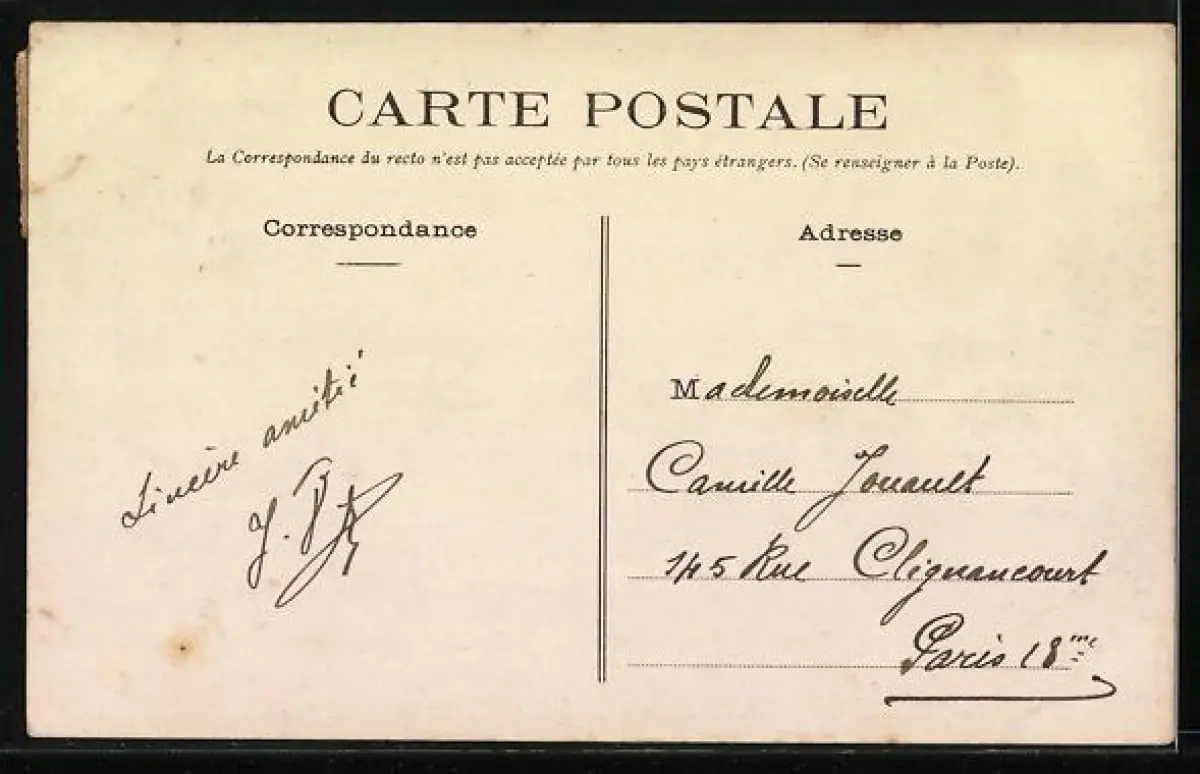 CARTE POSTALE
La Correspondance du recto n'est pas acceptée par tous les pays étrangers. (Se renseigner à la Poste).
Correspondance
Adresse
Sincère amitié
J.
Mademoiselle
Camille Jouault
145 Rue Clignancourt
Paris 18me